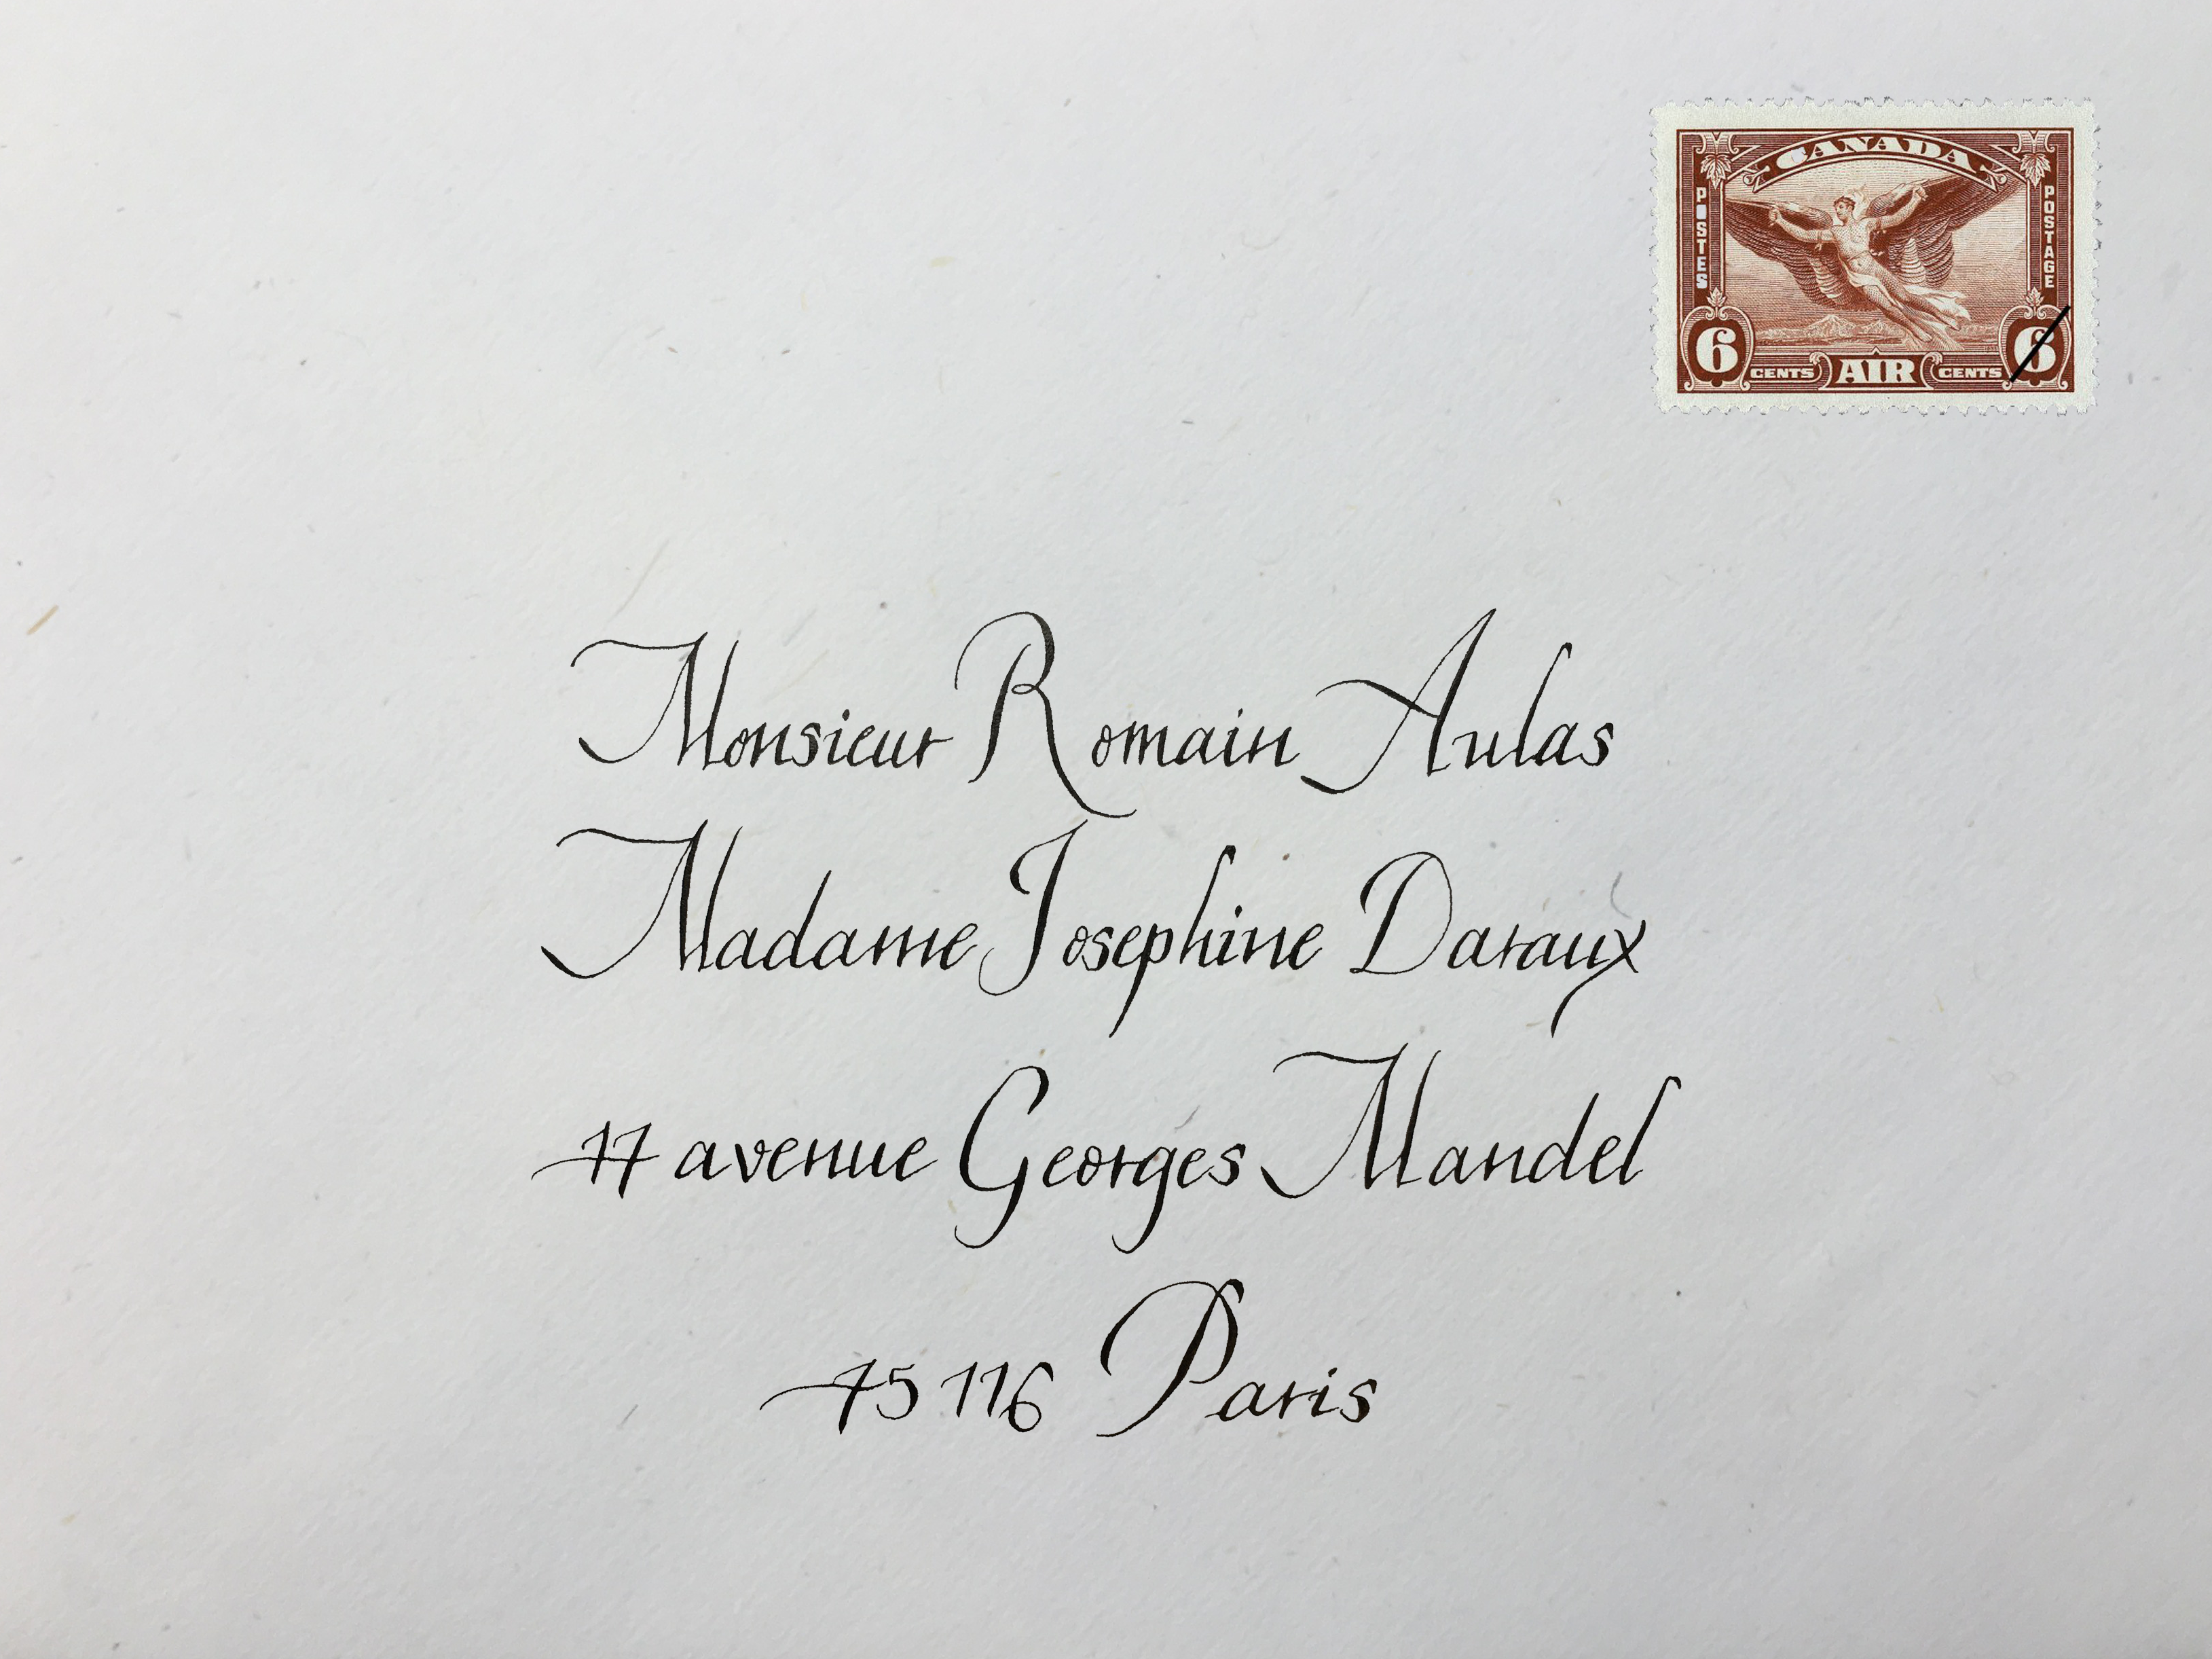 CANADA
POSTES
POSTAGE
6 CENTS AIR CENTS 6
Monsieur Romain Aulas
Madame Josephine Daraux
17 avenue Georges Mandel
75 116 Paris